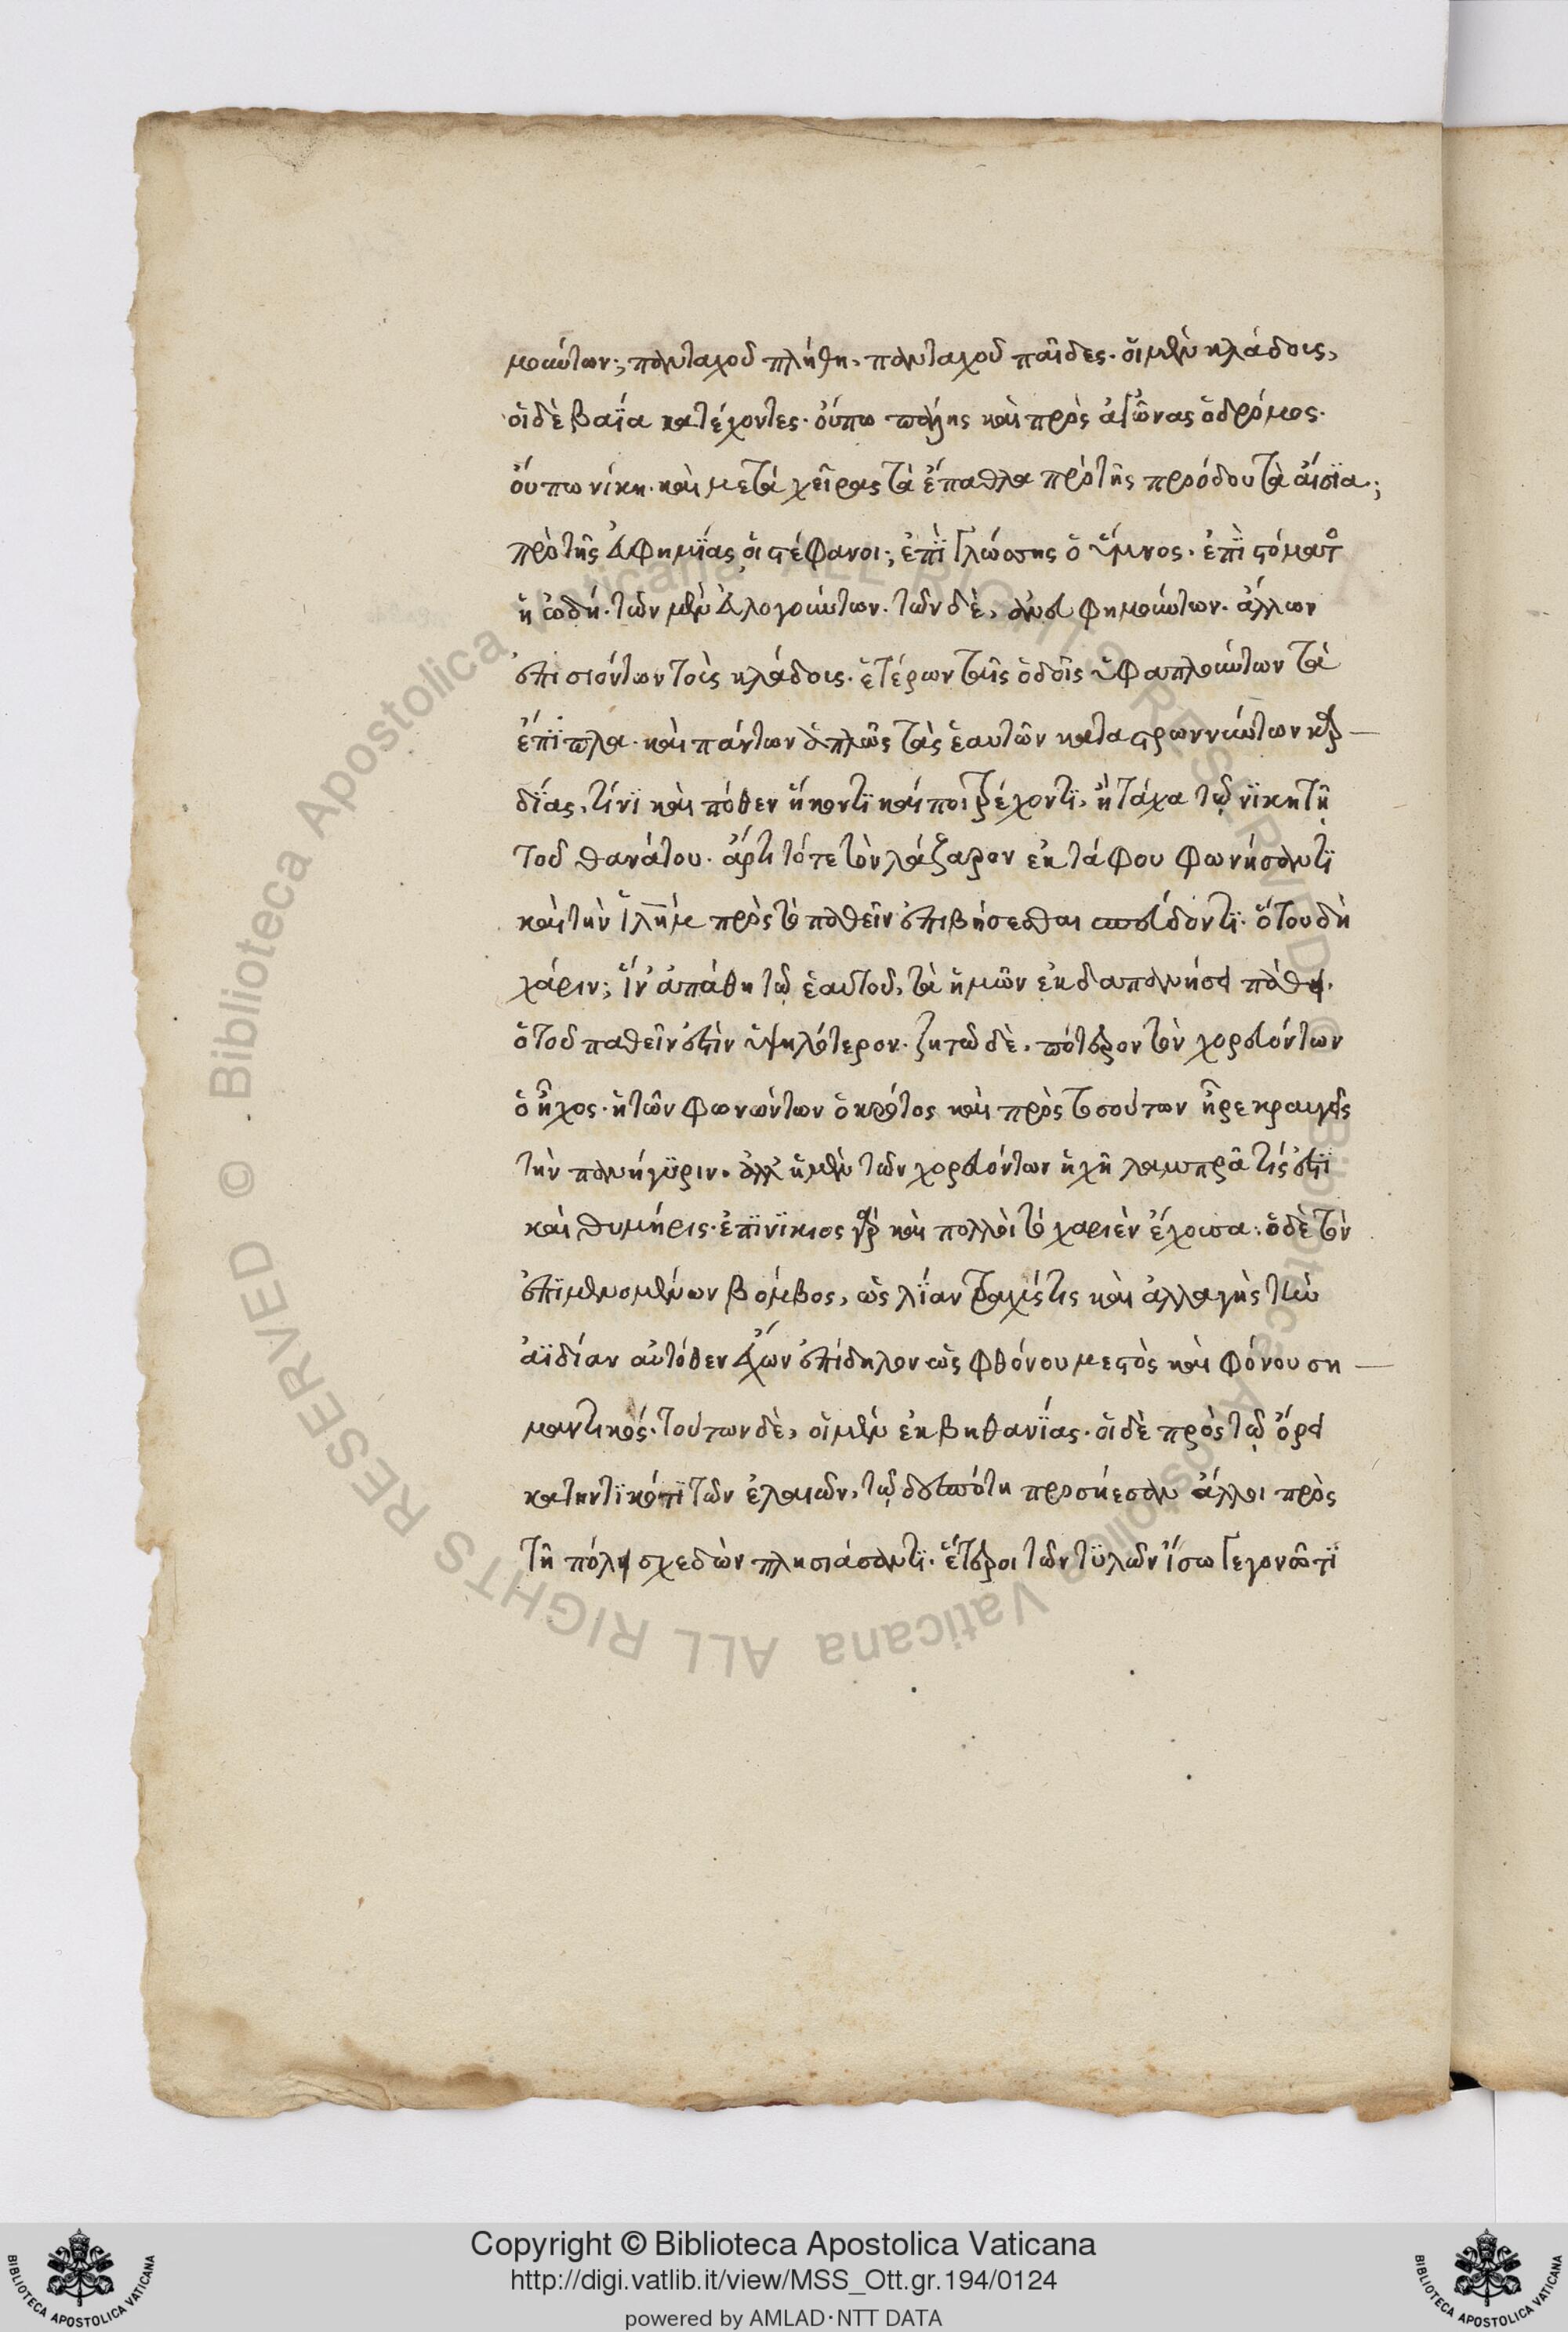 μούντων; πανταχοῦ πλήθη, πανταχοῦ παῖδες. οἱ μὲν κλάδοις,
οἱ δὲ βαΐα κατέχοντες. οὔπω πάλης καὶ πρὸς ἀγῶνας ὁ δρόμος.
οὔπω νίκη. καὶ μετὰ χεῖρας τὰ ἔπαθλα πρὸ τῆς προόδου τὰ αἴσϊα;
πρὸ τῆς εὐφημΐας οἱ στέφανοι; ἐπῒ γλώσσης ὁ ὕμνος. ἐπῒ στόματος
ἡ ὠδή. τῶν μὲν εὐλογούντων. τῶν δὲ, ἀνευφημούντων. ἄλλων
ἐπισιόντων τοῖς κλάδοις. ἑτέρων ταῖς ὁδοῖς ὑφαπλούντων τὰ
ἔπϊπλα. καὶ πάντων ἁπλῶς τὰς ἑαυτῶν καταστρωννύντων καρ
δΐας, τίνϊ καὶ πόθεν ἥκοντϊ καὶ ποῖ τρέχοντϊ, ἢ τάχα τῷ νϊκητῇ
τοῦ θανάτου. ἄρτι τότε τὸν λάζαρον ἐκ τάφου φωνήσαντϊ
καὶ τὴν ἱλὴμ πρὸς τὸ παθεῖν ἐπιβήσεσθαι σπεύδοντϊ. ὅτου δὴ
χάριν; ἵν' ἀπάθη τῷ ἑαυτοῦ, τὰ ἡμῶν ἐκδαπανήσει πάθη.
ὃ τοῦ παθεῖν ἐστὶν ὑψηλότερον. ζητῶ δὲ, πότερον τῶν χορευόντων
ὁ ἦχος. ἢ τῶν φωνώντων ὁ κρότος καὶ πρὸς τοσοῦτον ἦρε κραυγῆς
τὴν πανήγϋριν. ἀλλ' ἡ μὲν τῶν χορευόντων ἠχὴ λαμπρά τίς ἐστϊ
καὶ θυμήρις. ἐπϊνΐκιος γὰρ καὶ πολλοὶ τὸ χαριὲν ἔχουσα. ὁ δὲ τῶν
ἐπϊμαινομένων βόμβος, ὡς λΐαν τραχύς τις καὶ ἀλλαγὴς τὴν
ἀϊδίαν αὐτόθεν ἔχων ἐπίδηλον ὡς φθόνου μεστὸς καὶ φόνου ση
μαντικός. τούτων δὲ, οἱ μὲν ἐκ βηθανΐας. οἱ δὲ πρὸς τῷ ὄρει
κατηντϊκότϊ τῶν ἐλαιῶν, τῷ δεσπότη προσήεσαν ἄλλοι πρὸς
τῇ πόλει σχεδὼν πλησιάσαντϊ. ἕτεροι τῶν τϋλῶν ἴσω γεγονότϊ
Copyright © Biblioteca Apostolica Vaticana
http://digi.vatlib.it/view/MSS_Ott.gr.194/0124
powered by AMLAD·NTT DATA